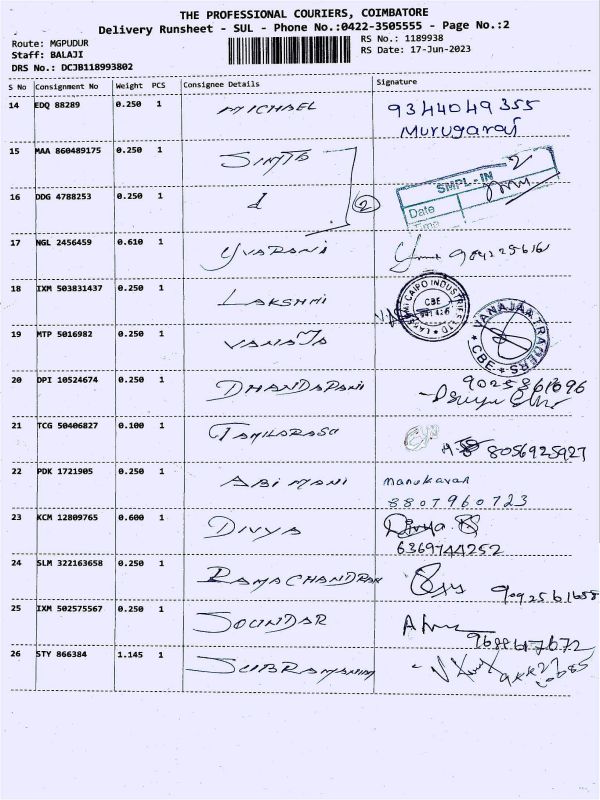 THE PROFESSIONAL COURIERS, COIMBATORE
Delivery Runsheet - SUL - Phone No.:0422-3505555 - Page No.:2
Route: MGPUDUR
Staff: BALAJI
DRS No.: DCJB118993802
RS No.: 1189938
RS Date: 17-Jun-2023
S No Consignment No Weight PCS Consignee Details Signature
14 EDQ 88289 0.250 1 MICHAEL 9344049355
Murugaraj
15 MAA 860489175 0.250 1
SMPL-IN
2
16 DDG 4788253 0.250 1 d 2
Date
Time
17 NGL 2456459 0.610 1 YVARANI
18 IXM 503831437 0.250 1 LAKSHMI
CBE
19 MTP 5016982 0.250 1 VANAJA
VANAJAA TRADERS
CBE
20 DPI 10524674 0.250 1 DHANDAPANI
21 TCG 50406827 0.100 1 TAMILARASU
8056925927
22 PDK 1721905 0.250 1 ABIMANI
8807960723
23 KCM 12809765 0.600 1 DIVYA Divya
6369744252
24 SLM 322163658 0.250 1 RAMACHANDRAN
9092561658
25 IXM 502575567 0.250 1 SOUNDAR
26 STY 866384 1.145 1 SUBRAMANIAM